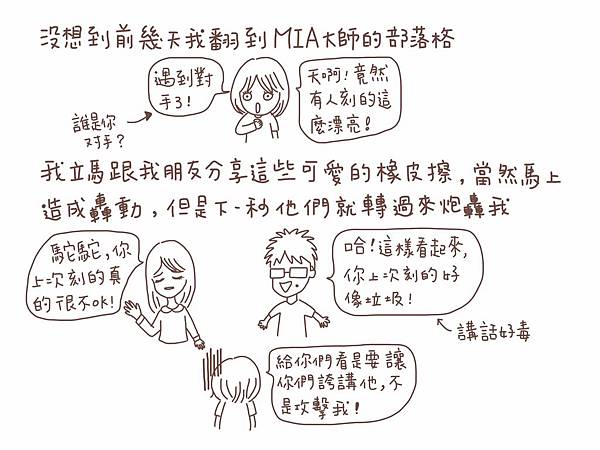 沒想到前幾天我翻到MIA大師的部落格
遇到對
手了!
天啊!竟然
有人刻的這
麼漂亮!
誰是你
对手?
我立馬跟我朋友分享這些可愛的橡皮擦,當然馬上
造成轟動,但是下一秒他們就轉過來炮轟我
鴕鴕,你
上次刻的真
的很不OK!
哈!這樣看起來,
你上次刻的好
像垃圾!
講話好毒
給你們看是要讓
你們誇講他,不
是攻擊我!